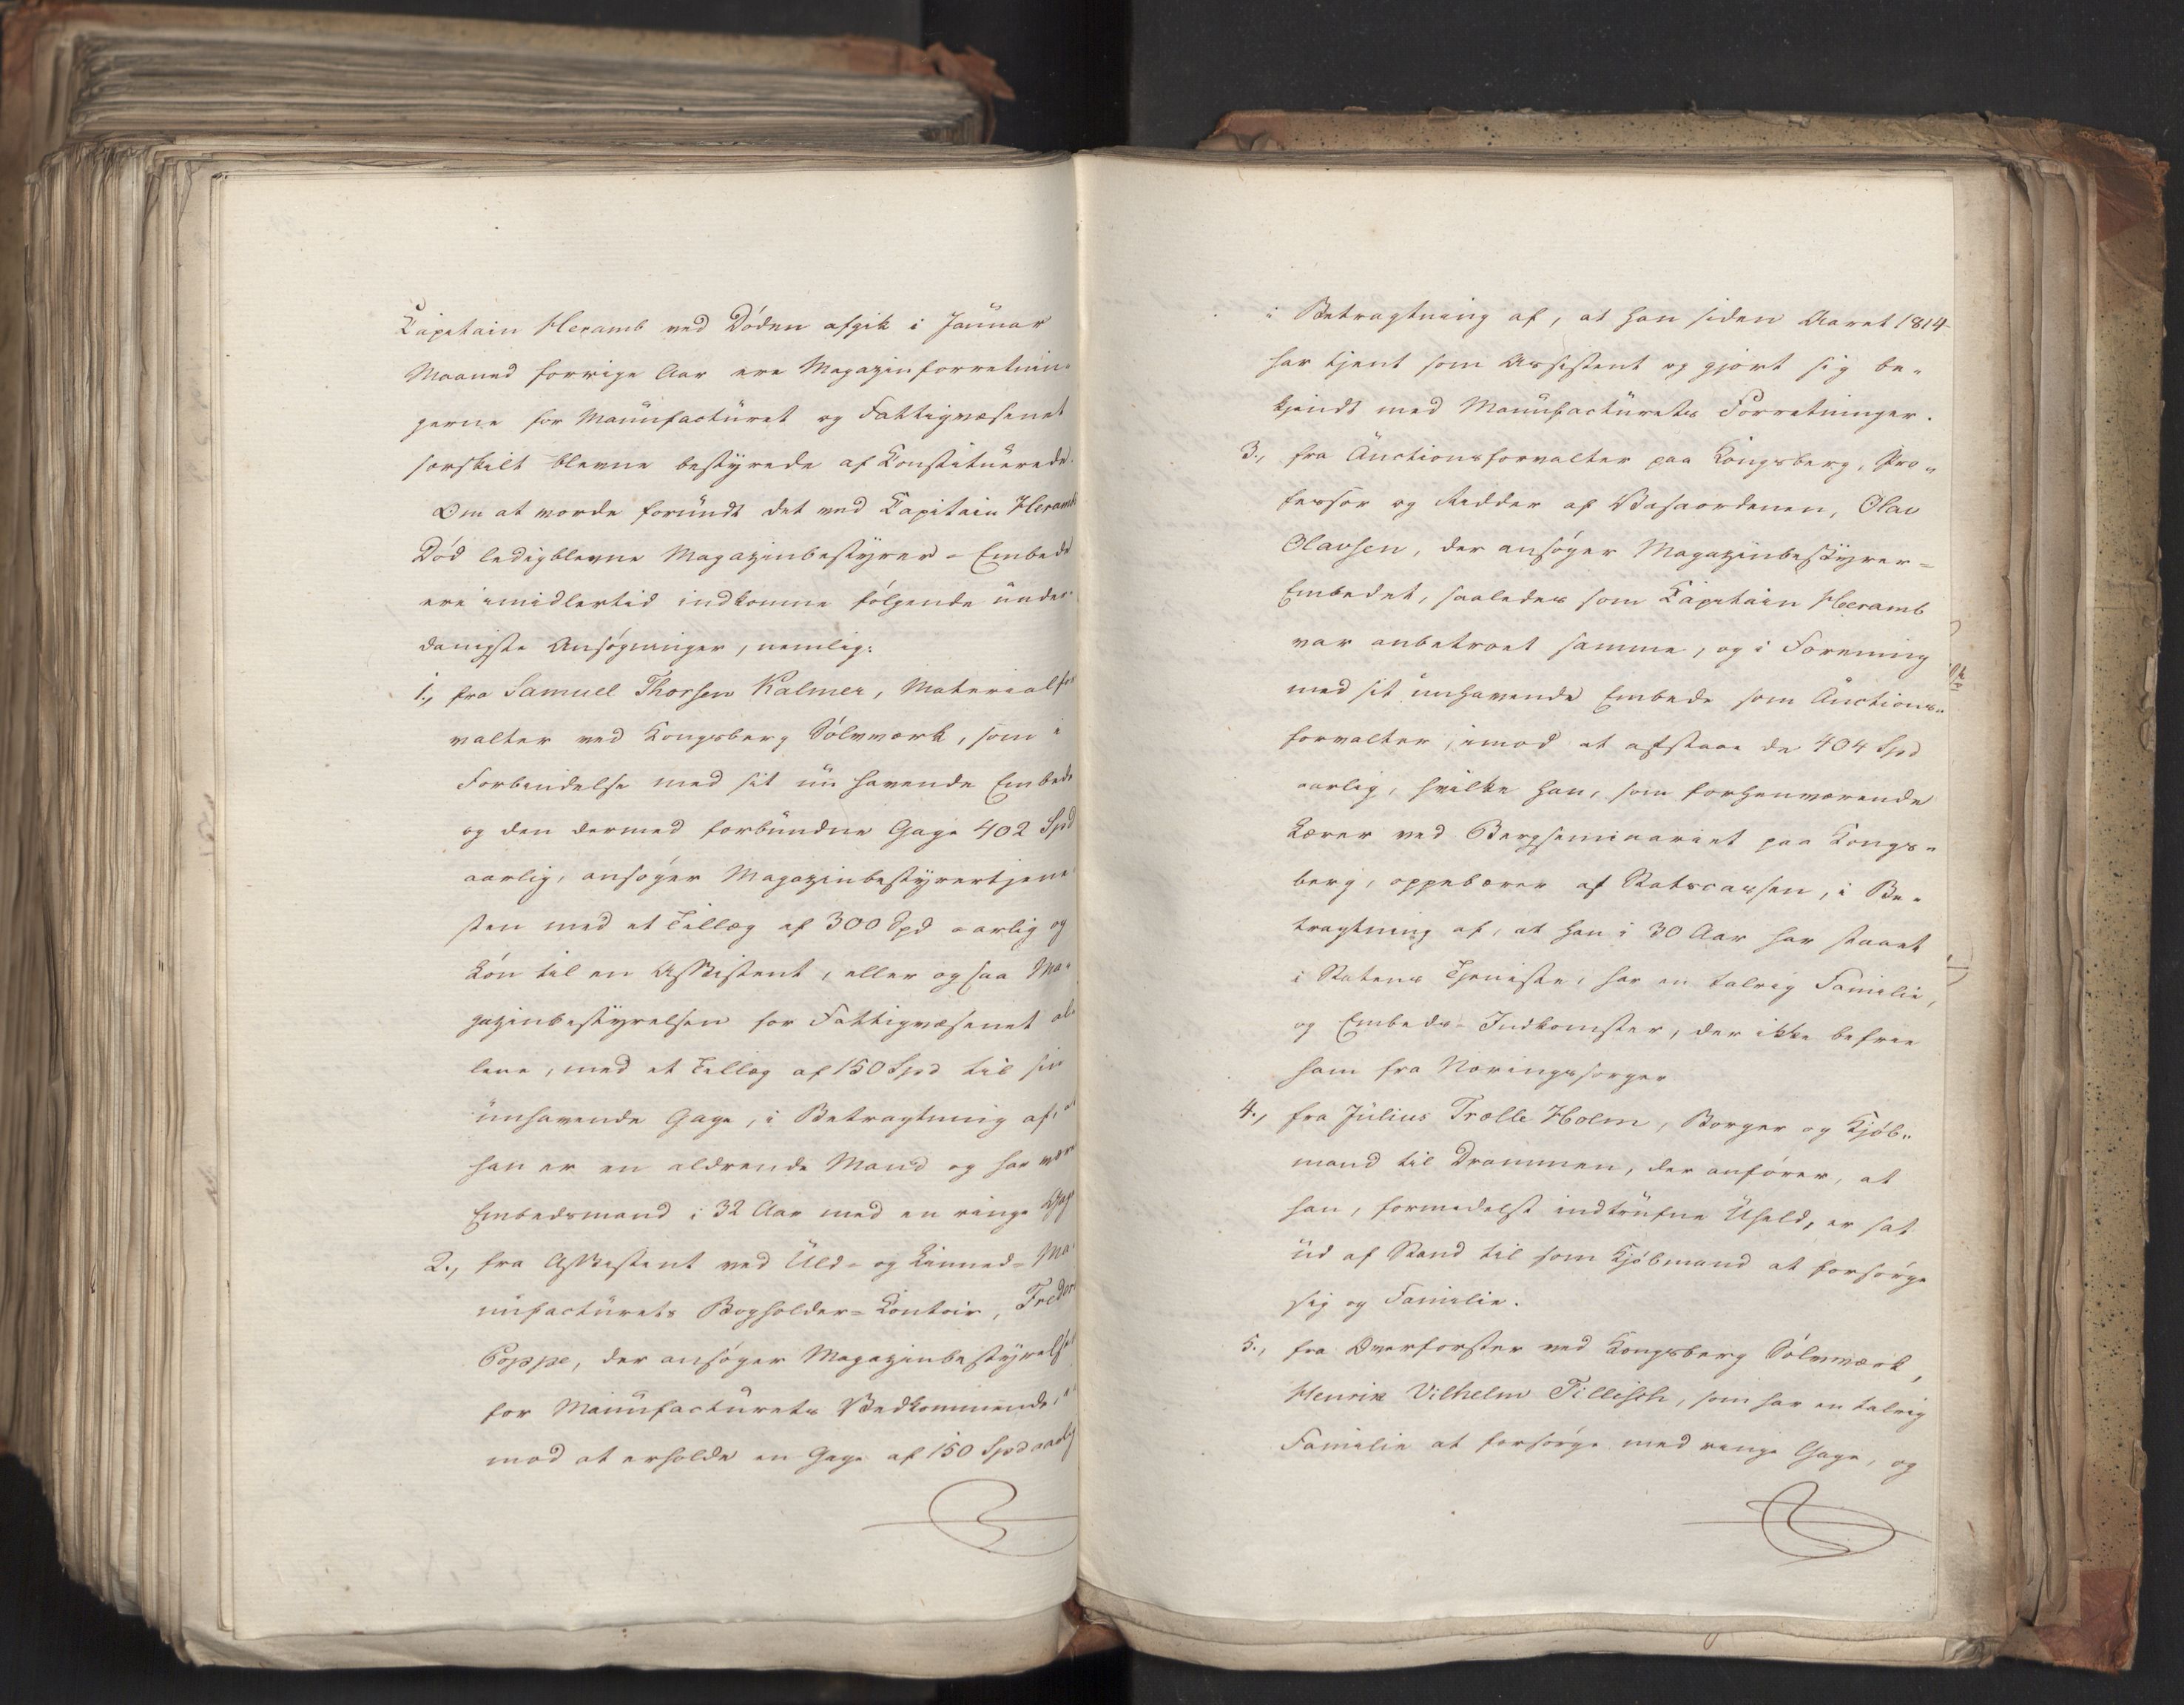 Capitain Heramb ved Døden afgik i Januar
Maaned forrige Aar ere Magazinforretnin-
gerne for Manufacturet og Fattigvæsenet
særskilt blevne bestyrede af Constituerede.
Om at vorde forundt det ved Capitain Heramb
Død ledigblevne Magazinbestyrer-Embede
ere imidlertid indkomne følgende under-
danigste Ansøgninger, nemlig:
1., fra Samuel Thorsen Kalmer, Materialfor
valter ved Kongsberg Sølvværk, som i
Forbindelse med sit nu havende Embede
og den dermed forbundne Gage 402 Spd
aarlig, ansøger Magazinbestyrertjene
sten med et Tillæg af 300 Spd aarlig og
Løn til en Assistent, eller og saa Ma-
gazinbestyrelsen for Fattigvæsenet al-
lene, med et Tillæg af 150 Spd til sin
nuhavende Gage, i Betragtning af, at
han er en aldrende Mand og har være
Embedsmand i 32 Aar med en ringe Gage
2., fra Assistent ved Uld- og Linned-Ma-
nufacturets Bogholder-Contoir, Fredor
Poppe, der ansøger Magazinbestyrelsen
for Manufacturets Vedkommende,
mod at erholde en Gage af 150 Spd aarlig
i Betragtning af, at han siden Aaret 1814
har tjent som Assistent og gjort sig be-
kjendt med Manufacturets Forretninger.
3., fra Auctionsforvalter paa Kongsberg, Pro-
fessor og Ridder af Vasaordenen, Olav
Olavsen, der ansøger Magazinbestyrer-
Embedet, saaledes som Capitain Heramb
var anbetroet samme, og i Forening
med sit nuhavende Embede som Auctions-
forvalter, imod at afstaae de 404 Spd
aarlig, hvilke han, som forhenværende
Lærer ved Bergseminariet paa Kongs-
berg, oppebærer af Statscassen, i Be-
tragtning af, at han i 30 Aar har staaet
i Statens Tjeneste, har en talrig Familie,
og Embeds-Indkomster, der ikke befrie
ham fra Næringssorger
4., fra Julius Trælle Holm, Borger og Kjøb-
mand til Drammen, der anfører, at
han, formedelst indtrufne Uheld, er sat
ud af Stand til som Kjøbmand at forsørge
sig og Familie.
5., fra Overforster ved Kongsberg Sølvværk,
Henrik Vilhelm Tillisch, som har en talrig
Familie at forsørge med ringe Gage, og